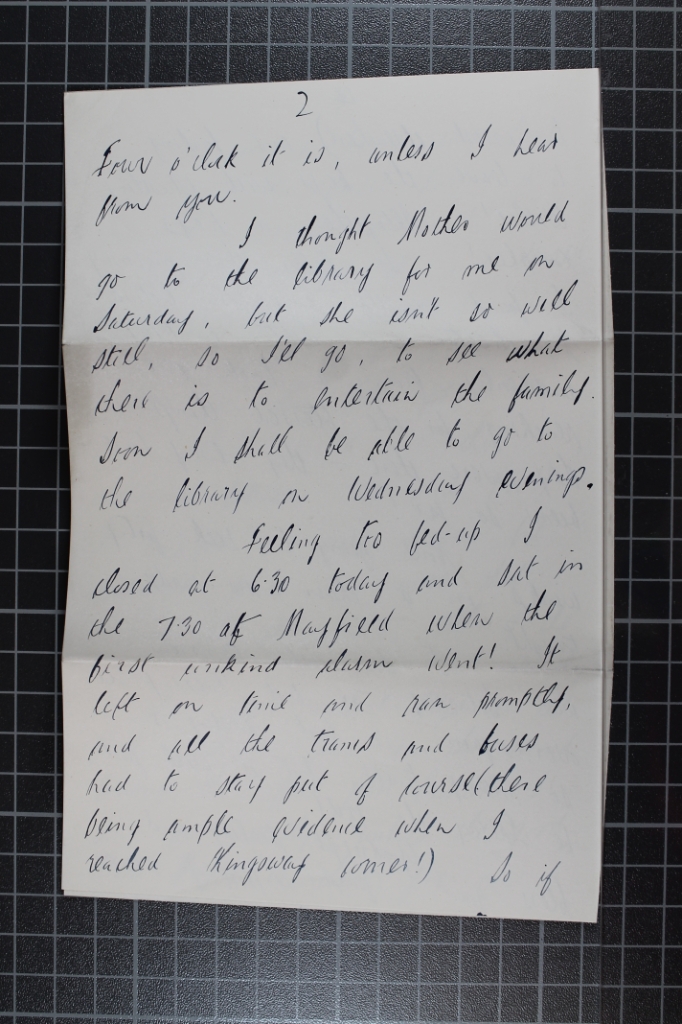 2
Four o'clock it is, unless I hear
from you.
I thought Mother would
go to the library for me on
Saturday, but she isn't so well
still, so I'll go, to see what
there is to entertain the family.
Soon I shall be able to go to
the library on Wednesday evenings.
Feeling too fed-up I
closed at 6.30 today and sat in
the 7.30 at Mayfield when the
first unkind alarm went! It
left on time and ran promptly,
and all the trams and buses
had to stay put of course (there
being ample evidence when I
reached Kingsway corner!) So if